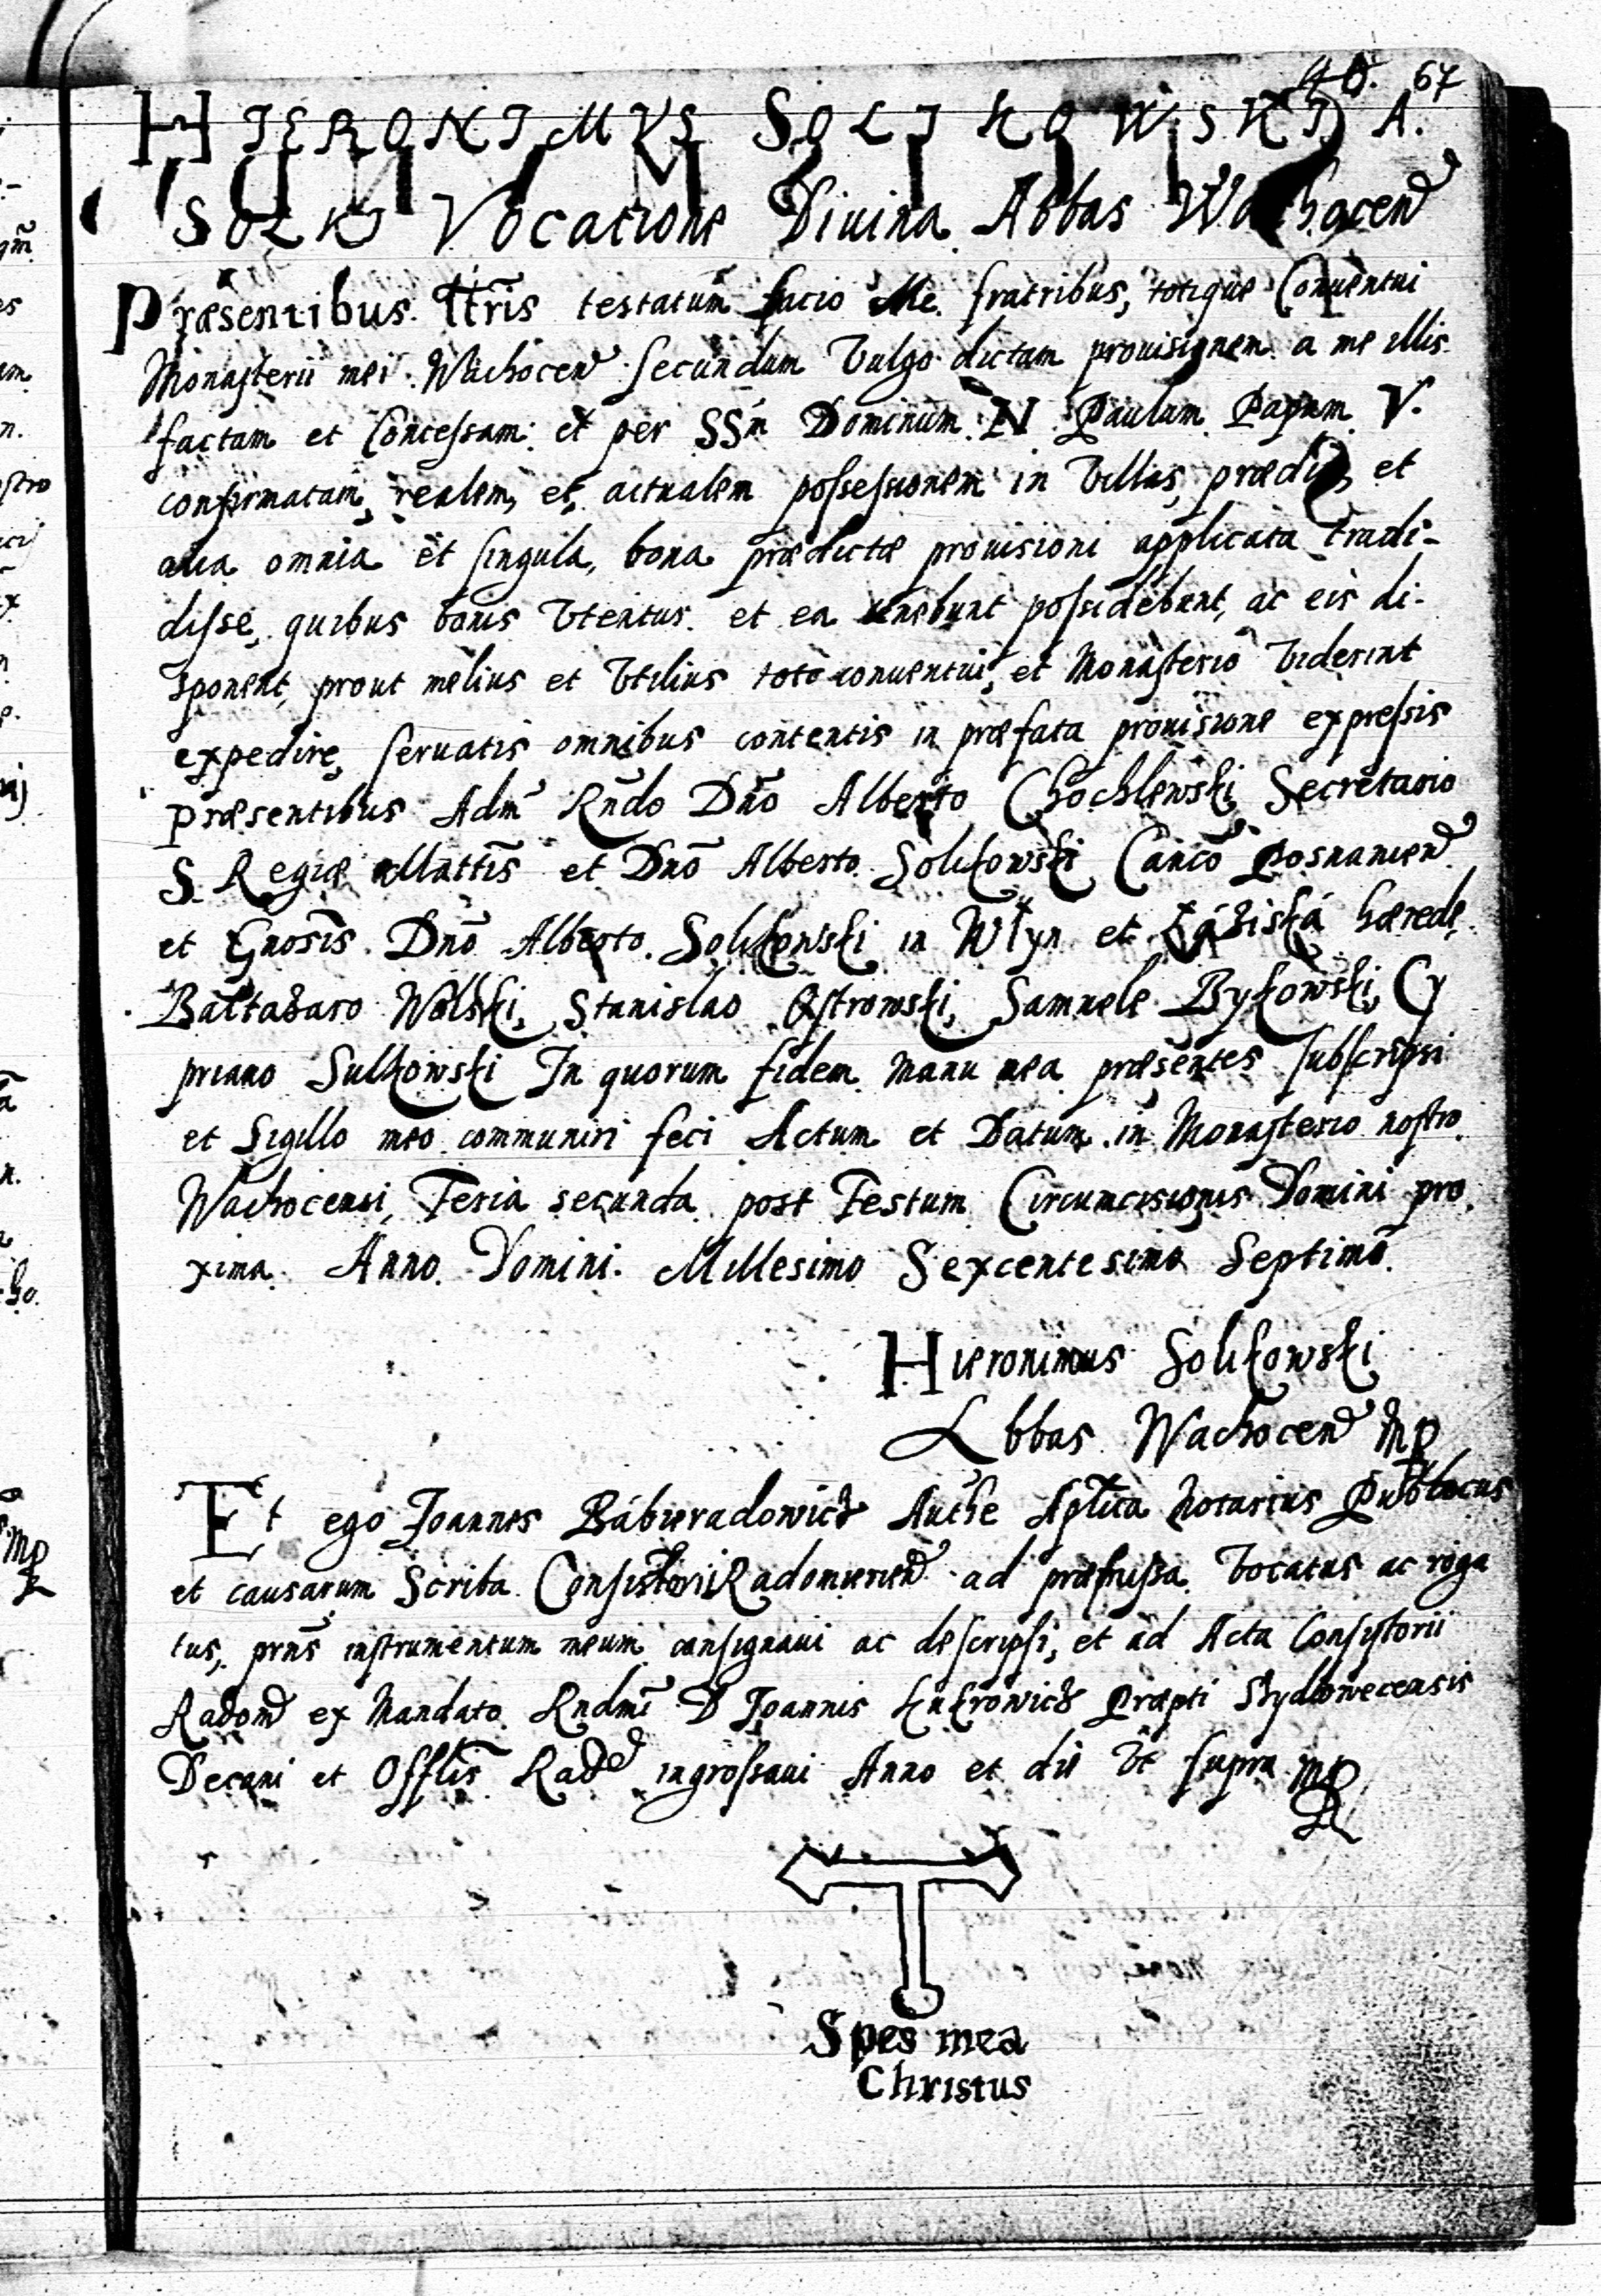 67
HIERONIMVS SOLIKOWSKI A.
SOLKI Vocatione Diuina Abbas Wachocen
Præsentibus ltris testatum facio Me fratribus, totique Conuentui
Monasterii mei Wachocen secundum vulgo dictam prouisionem a me illis
factam et Concessam et per SSm Dominum N Paulum Papam V.
confirmatam, realem, et, actualem possessionem in villas, prædia, et
alia omnia et singula, bona prædictæ prouisioni applicata tradi-
disse, quibus bonis vtentur et ea tenebunt possidebunt, ac eis di-
sponent, prout melius et vtilius toto conuentui, et Monasterio viderint
expedire, seruatis omnibus contentis in præfata prouisione expressis
præsentibus Adm Rndo Dno Alberto Chochlewski Secretario
S Regiæ Mattis et Dno Alberto Solikowski Canco Posnanien
et Gnosis Dno Alberto Solikowski in Włyn et Łáziská hærede
Baltazaro Wolski, Stanislao Ostrowski, Samuele Bykowski, Cy
priano Sulkowski In quorum fidem manu mea præsentes subscripsi
et Sigillo meo communiri feci Actum et Datum in Monasterio nostro
Wachocensi, Feria secunda post Festum Circumcisionis Domini pro
xima Anno Domini Millesimo Sexcentesimo Septimo.
Hieronimus Solikowski
Abbas Wachocen mp
Et ego Joannes Bábieradowicz Authe Aplica Notarius Publicus
et causarum Scriba Consistorii Radomien ad præmissa vocatus ac roga
tus, prns instrumentum meum consignaui ac descripsi, et ad Acta Consistorii
Radom ex Mandato Rndmi D Joannis Præpti Szydlowecensis
Decani et Offlis Rad ingrossaui Anno et die vt supra mp
Spes mea
Christus